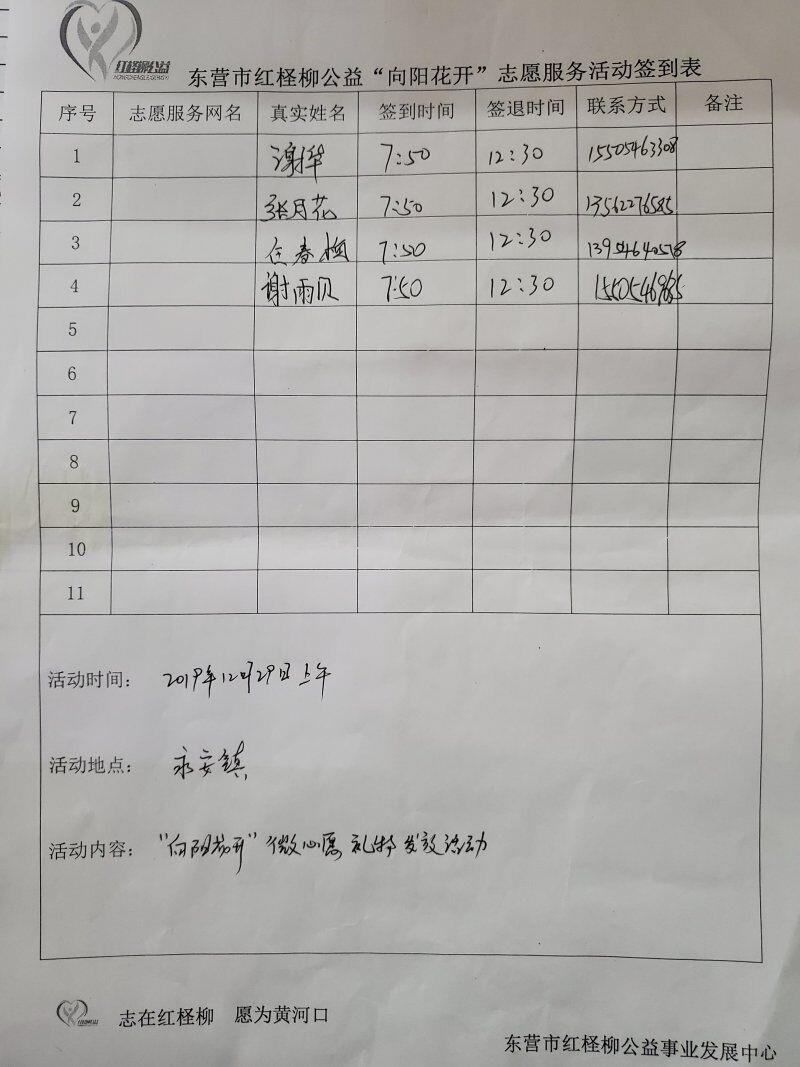 红柽柳公益
HONGCHENGLIUGONGYI
东营市红柽柳公益“向阳花开”志愿服务活动签到表
序号 志愿服务网名 真实姓名 签到时间 签退时间 联系方式 备注
1 谢桦 7:50 12:30 15505463308
2 张月花 7:50 12:30 13562276585
3 任春梅 7:50 12:30
4 谢雨贝 7:50 12:30
5
6
7
8
9
10
11
活动时间: 2019年12月29日上午
活动地点: 永安镇
活动内容: “向阳花开”微心愿礼物发放活动
志在红柽柳 愿为黄河口
东营市红柽柳公益事业发展中心